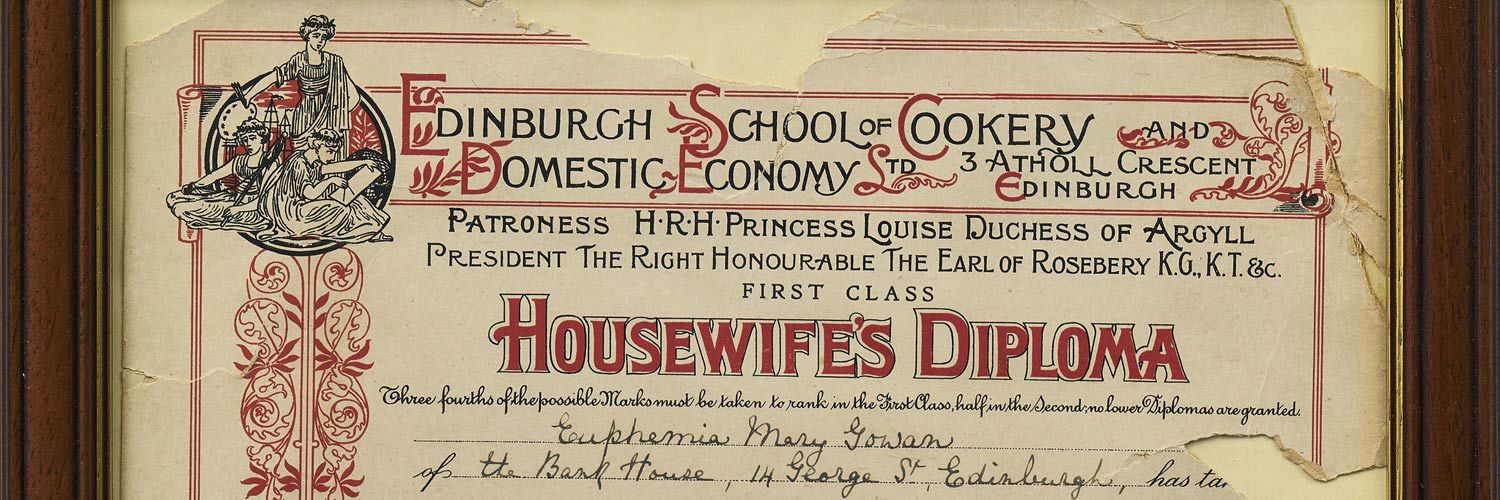 EDINBURGH SCHOOL OF COOKERY AND
DOMESTIC ECONOMY LTD 3 ATHOLL CRESCENT
EDINBURGH
PATRONESS H·R·H· PRINCESS LOUISE DUCHESS OF ARGYLL
PRESIDENT THE RIGHT HONOURABLE THE EARL OF ROSEBERY K.G., K.T. &c.
FIRST CLASS
HOUSEWIFE'S DIPLOMA
Three fourths of the possible Marks must be taken to rank in the First Class, half in the Second; no lower Diplomas are granted.
Euphemia Mary Gowan
of the Bank House, 14 George St, Edinburgh, has